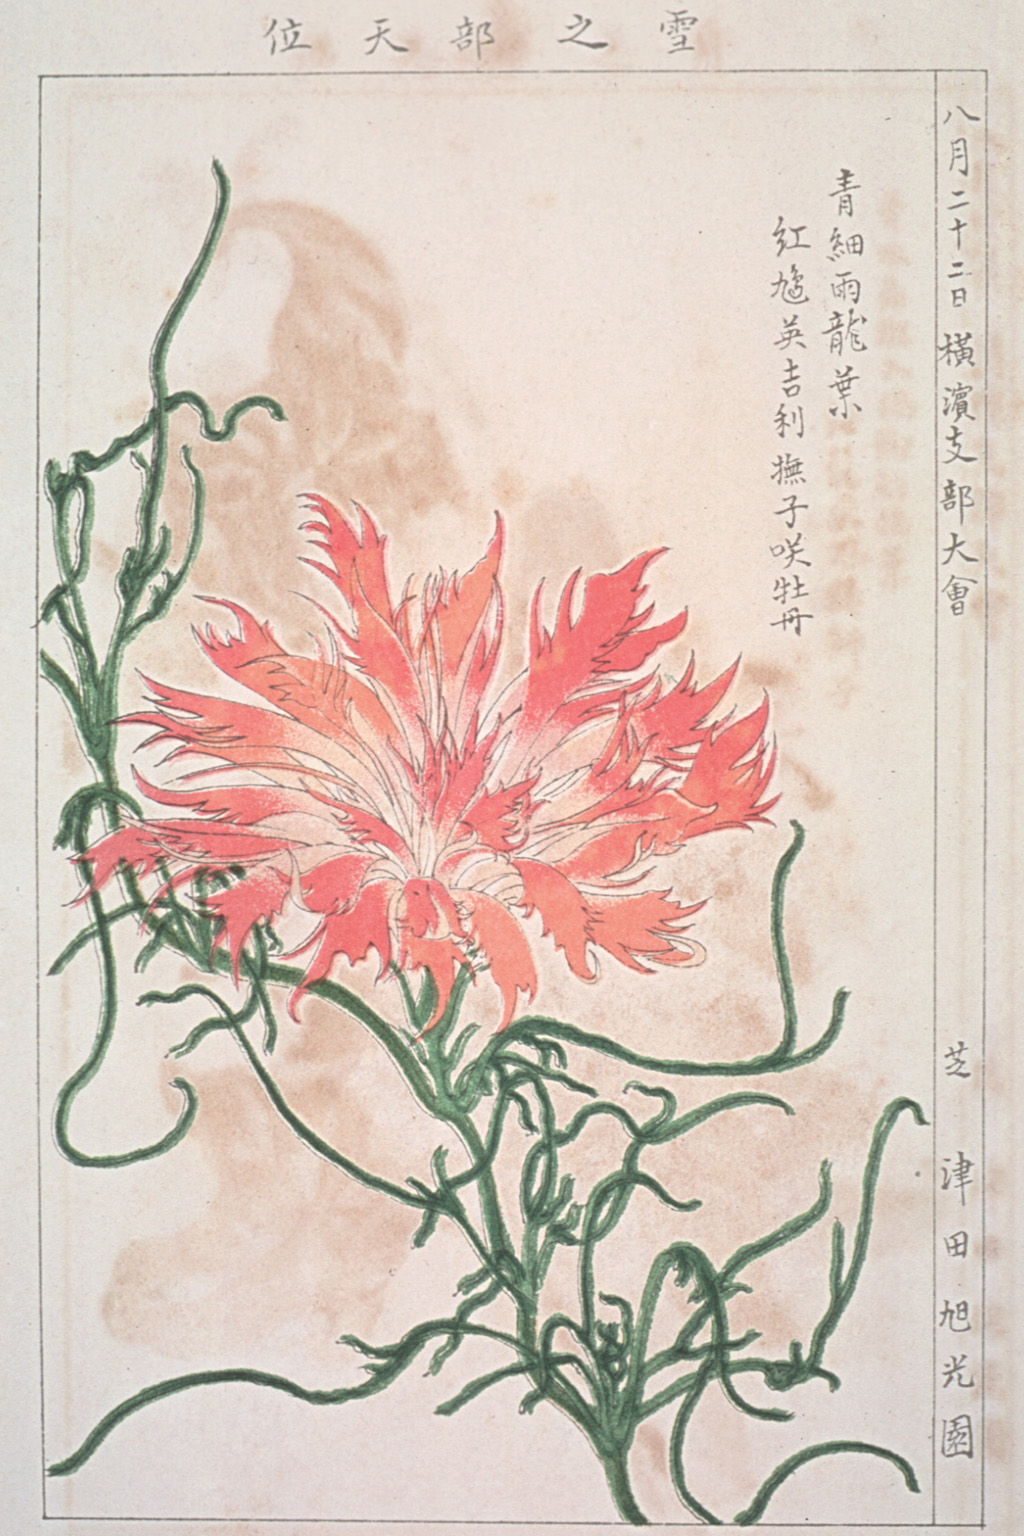 雪之部天位
八月二十二日 橫濱支部大會
芝 津田旭光園
青細雨龍葉
紅英吉利撫子咲牡丹